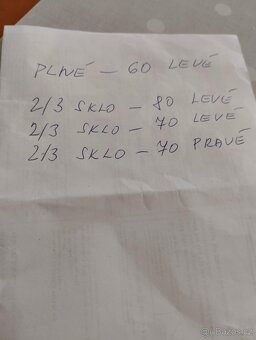 PLNÉ - 60 LEVÉ
2/3 SKLO - 80 LEVÉ
2/3 SKLO - 70 LEVÉ
2/3 SKLO - 70 PRAVÉ